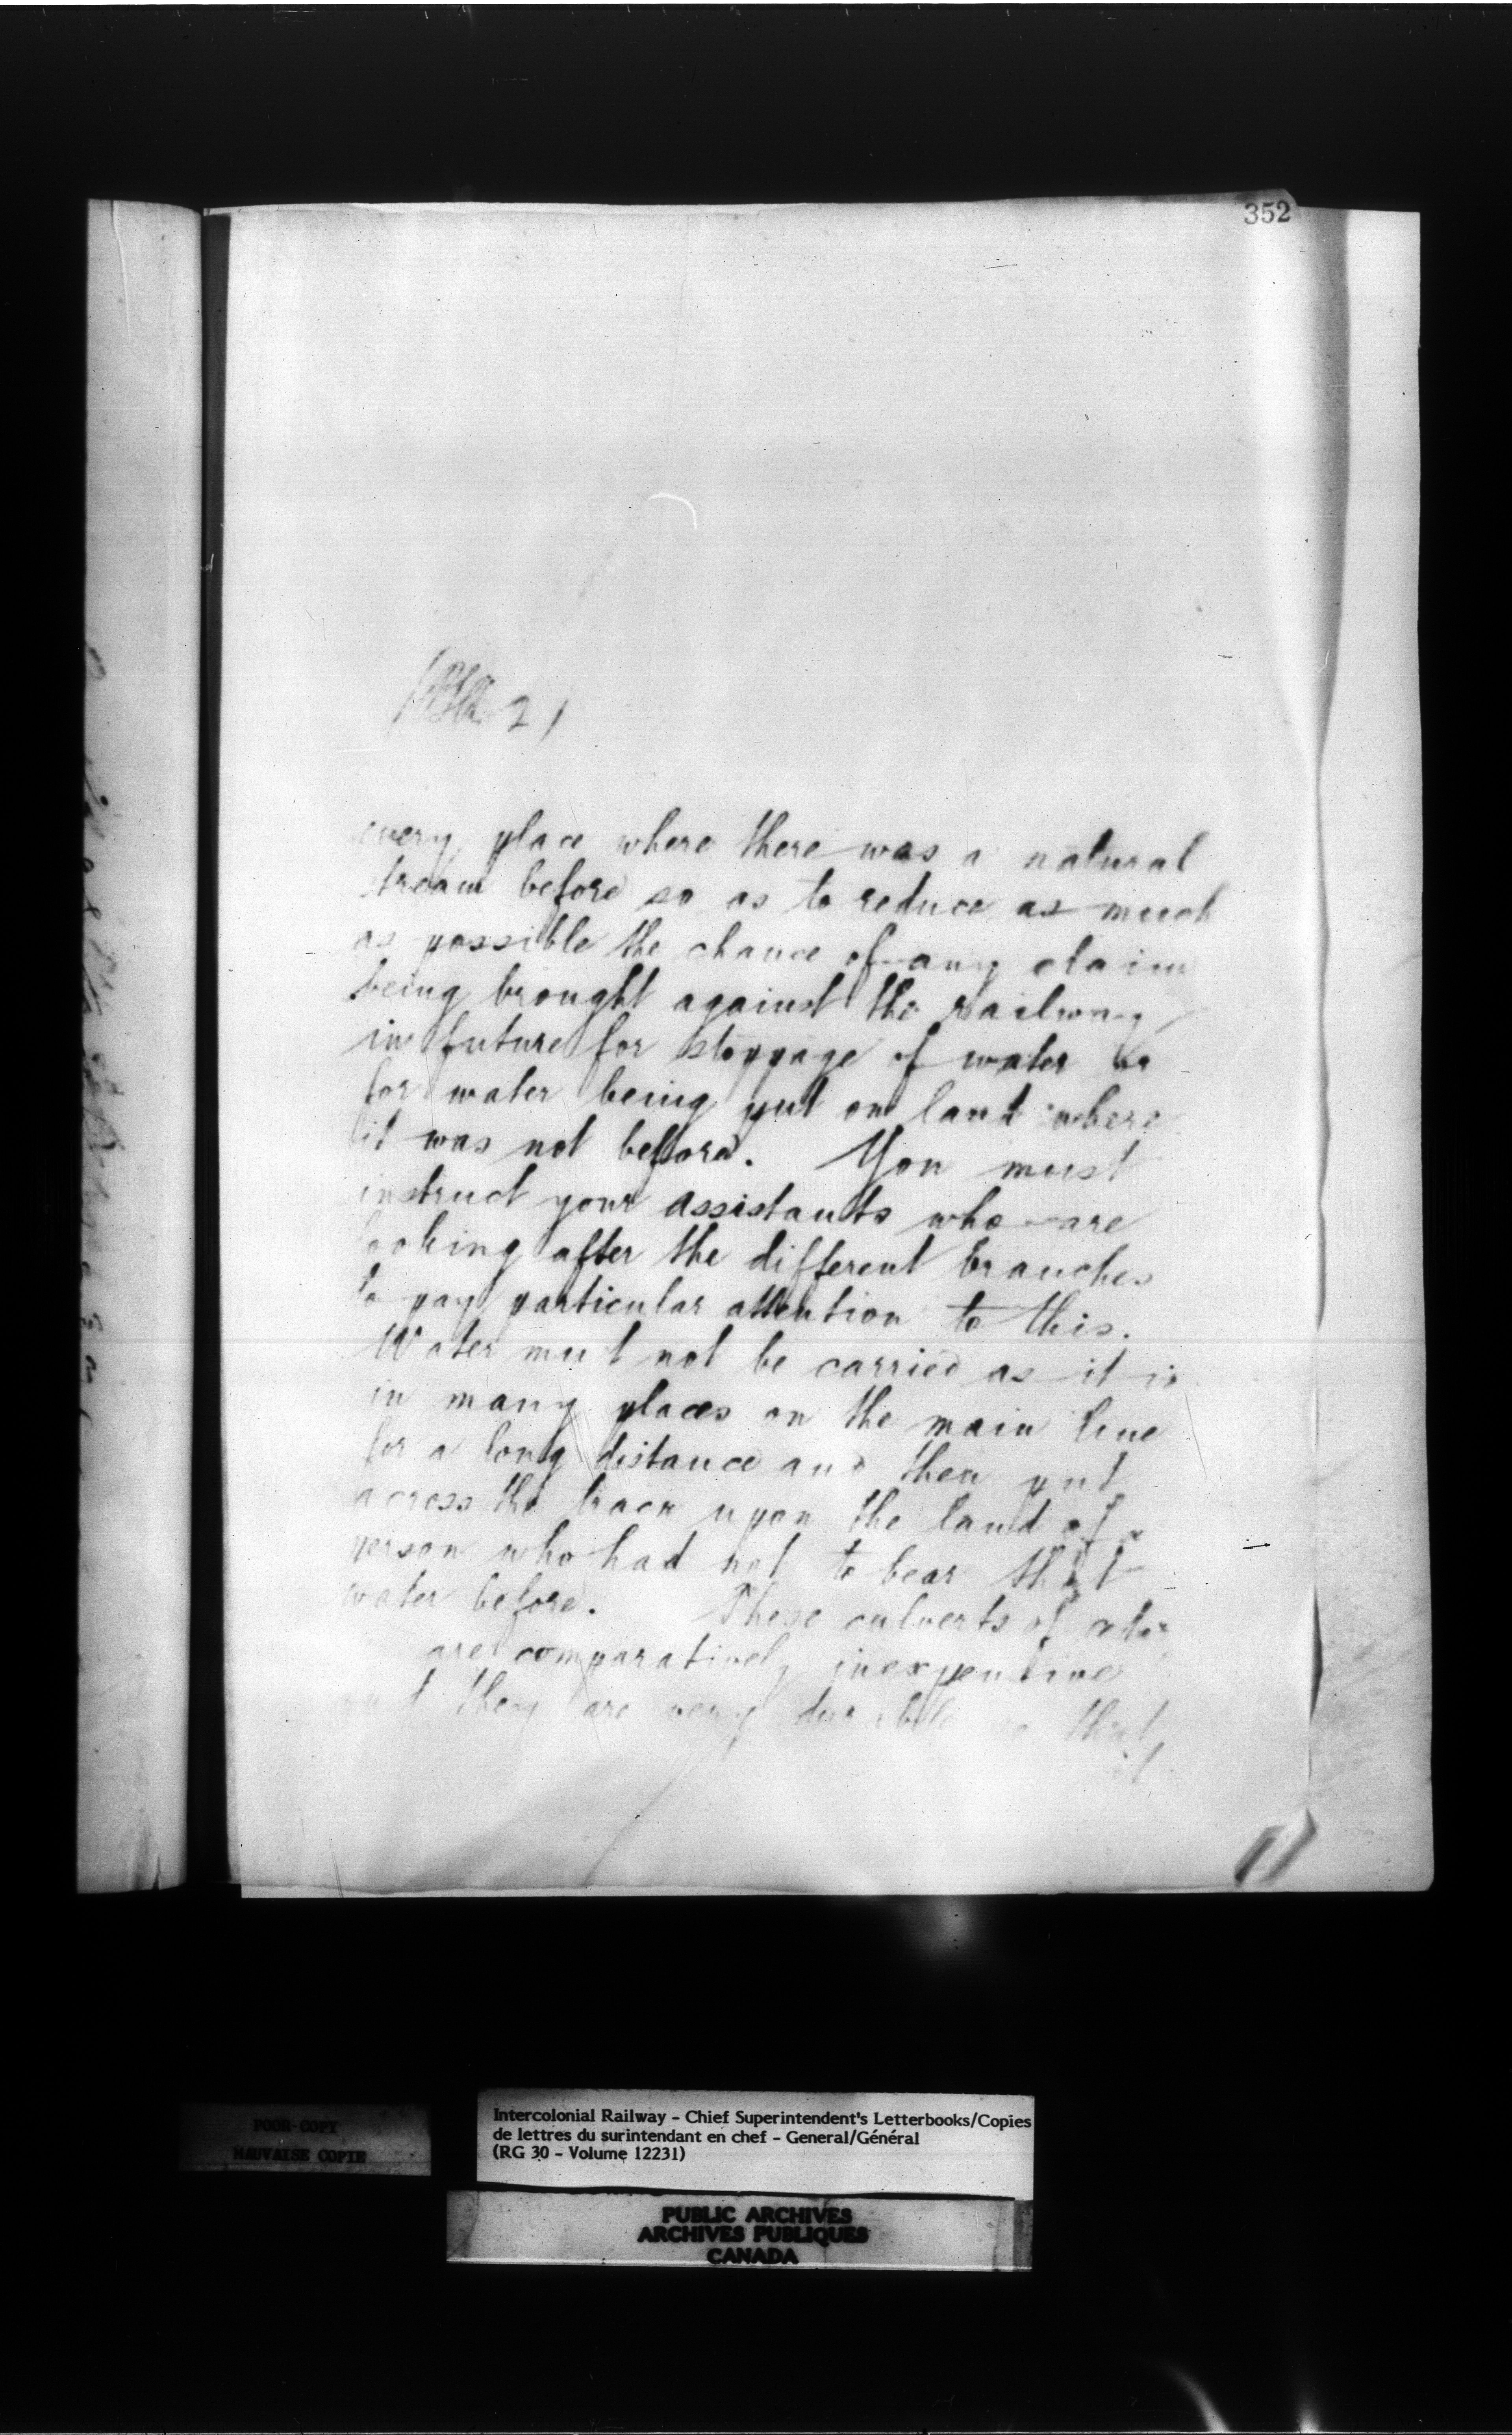 352
2)
every place where there was a natural
stream before so as to reduce as much
as possible the chance of any claim
being brought against the railway
in future for stoppage of water or
for water being put on land where
it was not before. You must
instruct your assistants who are
looking after the different branches
to pay particular attention to this.
Water must not be carried as it is
in many places on the main line
for a long distance and then put
across the track upon the land of a
person who had not to bear that
water before. These culverts of
are comparatively inexpensive
they are very durable so that
it
POOR COPY
MAUVAISE COPIE
Intercolonial Railway - Chief Superintendent's Letterbooks/Copies
de lettres du surintendant en chef - General/Général
(RG 30 - Volume 12231)
PUBLIC ARCHIVES
ARCHIVES PUBLIQUES
CANADA